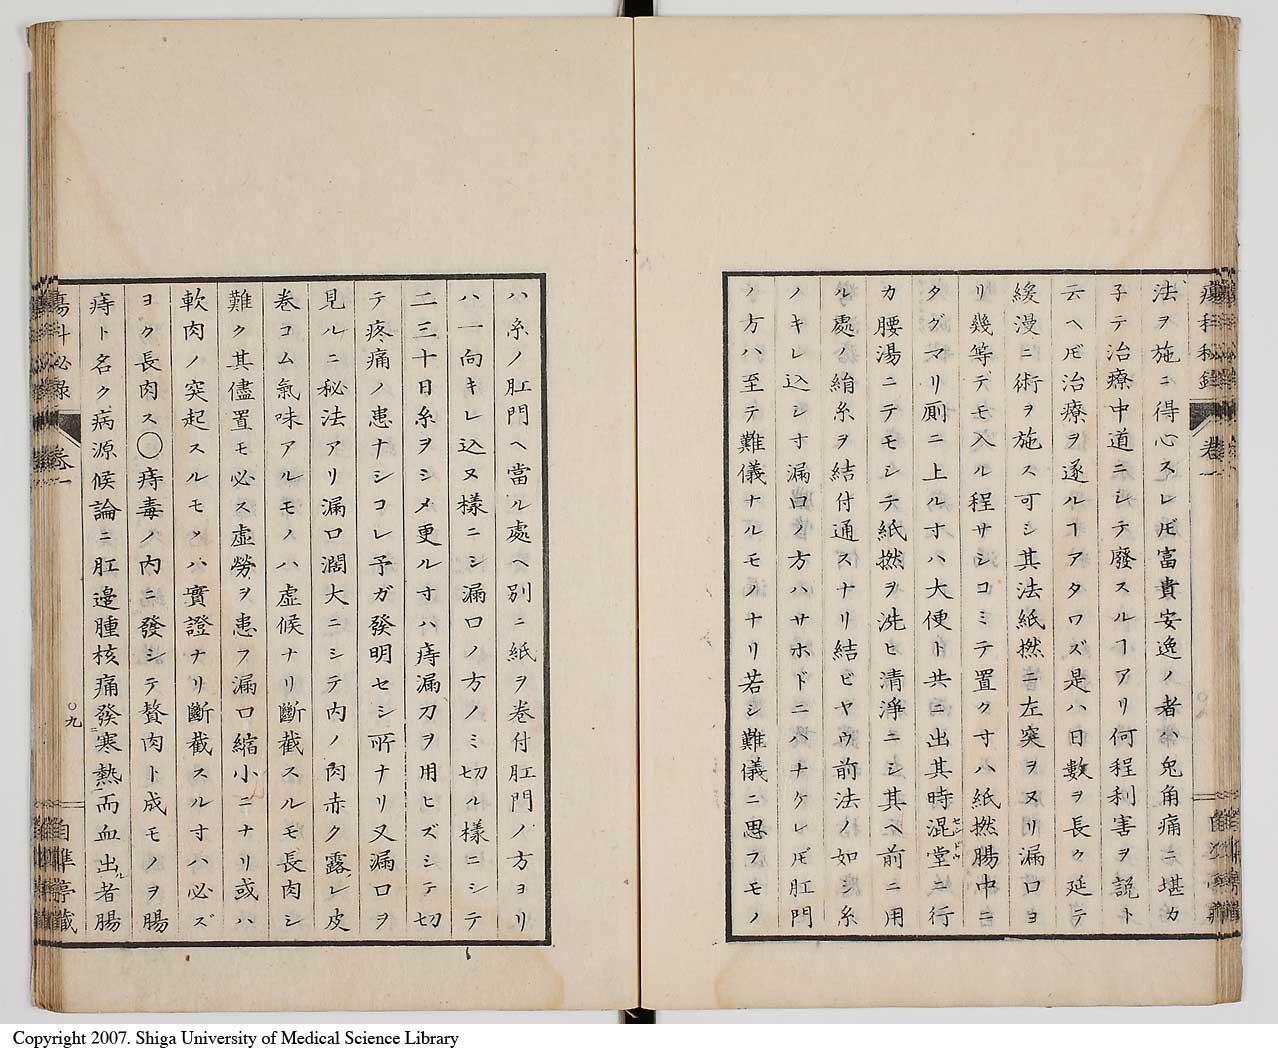 瘍科秘録 卷一
法ヲ施ニ得心スレ𪜈富貴安逸ノ者ハ兎角痛ニ堪カ
子テ治療中道ニシテ廢スルヿアリ何程利害ヲ說ト
云ヘ𪜈治療ヲ遂ルヿアタワズ是ハ日數ヲ長ク延テ
緩漫ニ術ヲ施ス可シ其法紙撚ニ左突ヲヌリ漏口ヨ
リ幾等デモ入ル程サシコミテ置ク寸ハ紙撚腸中ニ
タグマリ厠ニ上ル寸ハ大便ト共ニ出其時混堂ニ行
カ腰湯ニテモシテ紙撚ヲ洗ヒ清淨ニシ其ヘ前ニ用
ル處ノ絹糸ヲ結付通スナリ結ビヤウ前法ノ如シ糸
ノキレ込シ寸漏口ノ方ハサホドニハナケレ𪜈肛門
ノ方ハ至テ難儀ナルモノナリ若シ難儀ニ思フモノ
ハ糸ノ肛門ヘ當ル處ヘ別ニ紙ヲ卷付肛門ノ方ヨリ
ハ一向キレ込ヌ樣ニシ漏口ノ方ノミ切ル樣ニシテ
二三十日糸ヲシメ更ル寸ハ痔漏刀ヲ用ヒズシテ切
テ疼痛ノ患ナシコレ予ガ發明セシ所ナリ又漏口ヲ
見ルニ秘法アリ漏口濶大ニシテ內ノ肉赤ク露レ皮
卷コム氣味アルモノハ虛候ナリ斷截スルモ長肉シ
難ク其儘置モ必ス虛勞ヲ患フ漏口縮小ニナリ或ハ
軟肉ノ突起スルモノハ實證ナリ斷截スル寸ハ必ズ
ヨク長肉ス〇痔毒ノ內ニ發シテ贅肉ト成モノヲ腸
痔ト名ク病源候論ニ肛邊腫核痛發寒熱而血出者腸
瘍科秘錄 卷一
〇九
自準亭藏